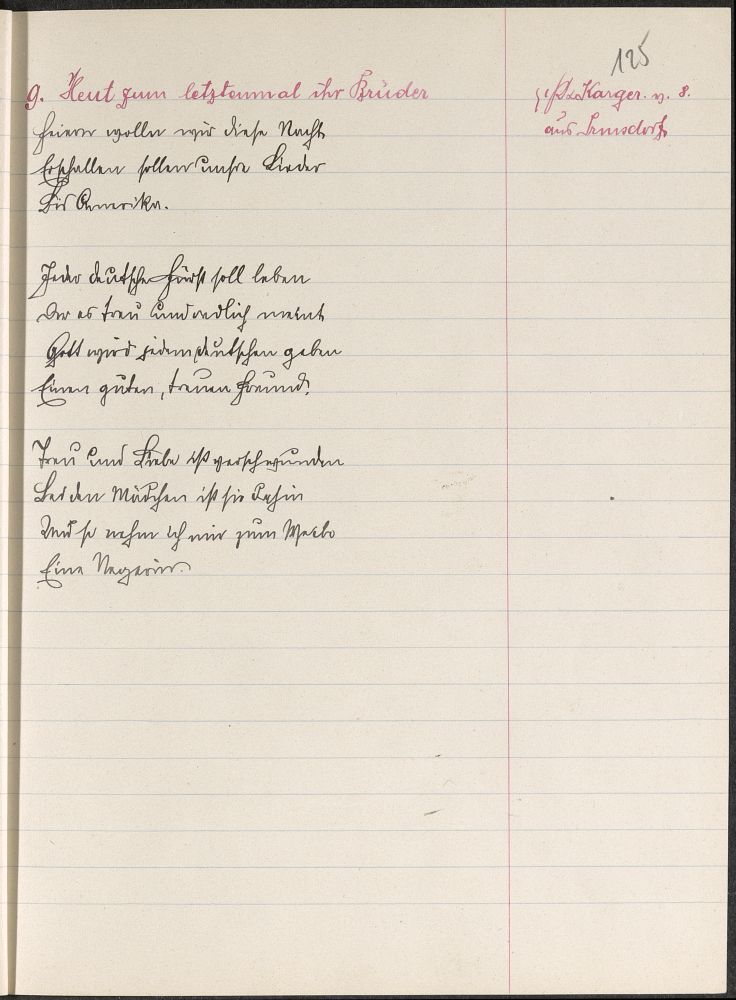 125
9. Heut zum letztenmal ihr Brüder
Karger. v. 8.
aus Irmsdorf
feiern wolln wir diese Nacht
Erschallen sollen unsre Lieder
Bis Amerika.
Jeder deutsche Fürst soll leben
Der es treu und redlich meint
Gott wird jedem deutschen geben
Einen guten, treuen Freund.
Treu und Liebe ist verschwunden
Bei den Mädchen ist sie dahin
Und so nehm ich mir zum Weibe
Eine Negerin.